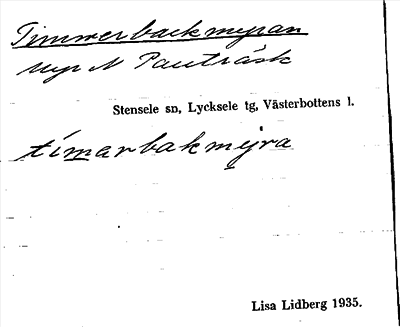 Timmerbackmyran
myr N Pauträsk
Stensele sn, Lycksele tg, Västerbottens l.
tímarbakmyra
Lisa Lidberg 1935.